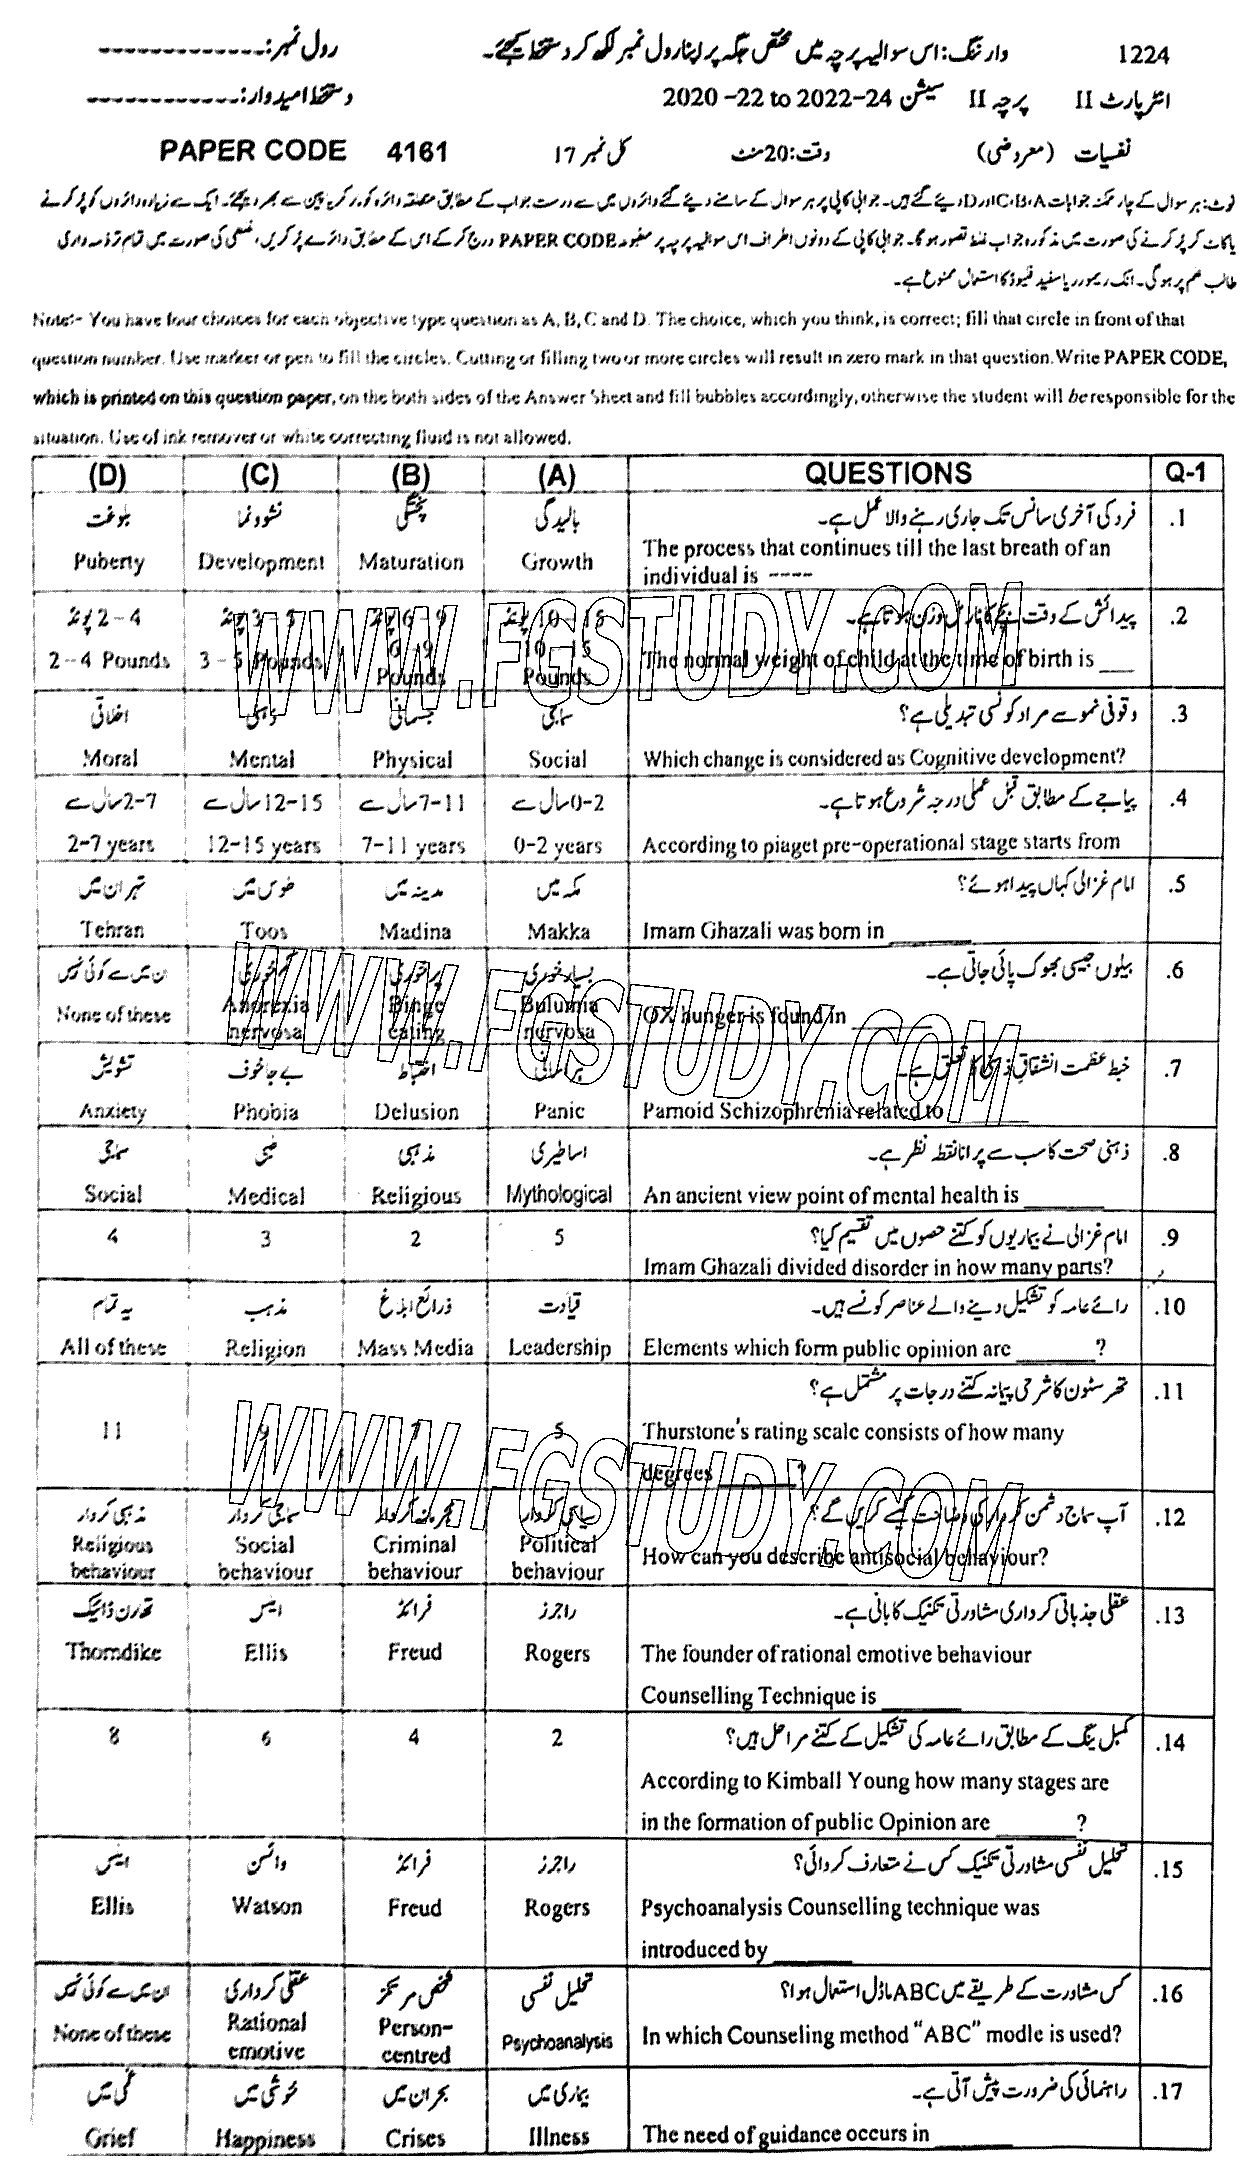 1224 وارننگ: اس سوالیہ پرچہ میں مختص جگہ پر اپنا رول نمبر لکھ کر دستخط کیجئے۔ رول نمبر: -------------
انٹر پارٹ II پرچہ II سیشن 2020 -22 to 2022-24 دستخط امیدوار: -------------
نفسیات (معروضی) وقت: 20 منٹ کل نمبر 17 PAPER CODE 4161
نوٹ: ہر سوال کے چار ممکنہ جوابات C،B،A اور D دیئے گئے ہیں۔ جوابی کاپی پر ہر سوال کے سامنے دیئے گئے دائروں میں سے درست جواب کے مطابق متعلقہ دائرہ کو مارکر یا پین سے بھر دیجئے۔ ایک سے زیادہ دائروں کو پُر کرنے
یا کاٹ کر پُر کرنے کی صورت میں مذکورہ جواب غلط تصور ہوگا۔ جوابی کاپی کے دونوں اطراف اس سوالیہ پرچہ پر مطبوعہ PAPER CODE درج کرکے اس کے مطابق دائرے پُر کریں، غلطی کی صورت میں تمام تر ذمہ داری
طالب علم پر ہوگی۔ انک ریموور یا سفید فلیوڈ کا استعمال ممنوع ہے۔
Note:- You have four choices for each objective type question as A, B, C and D. The choice, which you think, is correct; fill that circle in front of that
question number. Use marker or pen to fill the circles. Cutting or filling two or more circles will result in zero mark in that question. Write PAPER CODE,
which is printed on this question paper, on the both sides of the Answer Sheet and fill bubbles accordingly, otherwise the student will be responsible for the
situation. Use of ink remover or white correcting fluid is not allowed.
(D) (C) (B) (A) QUESTIONS Q-1
بلوغت نشوونما پختگی بالیدگی فرد کی آخری سانس تک جاری رہنے والا عمل ہے۔ .1
Puberty Development Maturation Growth The process that continues till the last breath of an
individual is ----
2-4 پونڈ 3-5 پونڈ 6-9 پونڈ 10-15 پونڈ پیدائش کے وقت بچے کا نارمل وزن ہوتا ہے۔ .2
2-4 Pounds 3-5 Pounds 6-9 Pounds 10-15 Pounds The normal weight of child at the time of birth is ___
اخلاقی ذہنی جسمانی سماجی وقوفی نمو سے مراد کونسی تبدیلی ہے؟ .3
Moral Mental Physical Social Which change is considered as Cognitive development?
2-7 سال سے 12-15 سال سے 7-11 سال سے 0-2 سال سے پیاجے کے مطابق قبل عملی درجہ شروع ہوتا ہے۔ .4
2-7 years 12-15 years 7-11 years 0-2 years According to piaget pre-operational stage starts from
تہران میں طوس میں مدینہ میں مکہ میں امام غزالی کہاں پیدا ہوئے؟ .5
Tehran Toos Madina Makka Imam Ghazali was born in ______
ان میں سے کوئی نہیں کم خوری پرخوری بسیار خوری بیلوں جیسی بھوک پائی جاتی ہے۔ .6
None of these Anorexia nervosa Binge eating Bulumia nervosa OX hunger is found in ______
تشویش بے جا خوف اختباط ہراسانی خبط عظمت انشقاق ذہنی کا تعلق ہے۔ .7
Anxiety Phobia Delusion Panic Parnoid Schizophrenia related to ______
سماجی طبی مذہبی اساطیری ذہنی صحت کا سب سے پرانا نقطہ نظر ہے۔ .8
Social Medical Religious Mythological An ancient view point of mental health is ______
4 3 2 5 امام غزالی نے بیماریوں کو کتنے حصوں میں تقسیم کیا؟ .9
Imam Ghazali divided disorder in how many parts?
یہ تمام مذہب ذرائع ابلاغ قیادت رائے عامہ کو تشکیل دینے والے عناصر کونسے ہیں۔ .10
All of these Religion Mass Media Leadership Elements which form public opinion are ______?
تھرسٹون کا شرحی پیمانہ کتنے درجات پر مشتمل ہے؟ .11
11 9 7 5 Thurstone's rating scale consists of how many
degrees ______?
مذہبی کردار سماجی کردار مجرمانہ کردار سیاسی کردار آپ سماج دشمن کردار کی وضاحت کیسے کریں گے؟ .12
Religious behaviour Social behaviour Criminal behaviour Political behaviour How can you describe antisocial behaviour?
تھارن ڈائیک ایلس فرائڈ راجرز عقلی جذباتی کرداری مشاورتی تکنیک کا بانی ہے۔ .13
Thorndike Ellis Freud Rogers The founder of rational emotive behaviour
Counselling Technique is ______
8 6 4 2 کمبل ینگ کے مطابق رائے عامہ کی تشکیل کے کتنے مراحل ہیں؟ .14
According to Kimball Young how many stages are
in the formation of public Opinion are ______?
ایلس واٹسن فرائڈ راجرز تحلیل نفسی مشاورتی تکنیک کس نے متعارف کروائی؟ .15
Ellis Watson Freud Rogers Psychoanalysis Counselling technique was
introduced by ______
ان میں سے کوئی نہیں عقلی کرداری شخص مرتکز تحلیل نفسی کس مشاورت کے طریقے میں ABC ماڈل استعمال ہوا؟ .16
None of these Rational emotive Person-centred Psychoanalysis In which Counseling method "ABC" modle is used?
غمی میں خوشی میں بحران میں بیماری میں راہنمائی کی ضرورت پیش آتی ہے۔ .17
Grief Happiness Crises Illness The need of guidance occurs in ______
WWW.FGSTUDY.COM
WWW.FGSTUDY.COM
WWW.FGSTUDY.COM